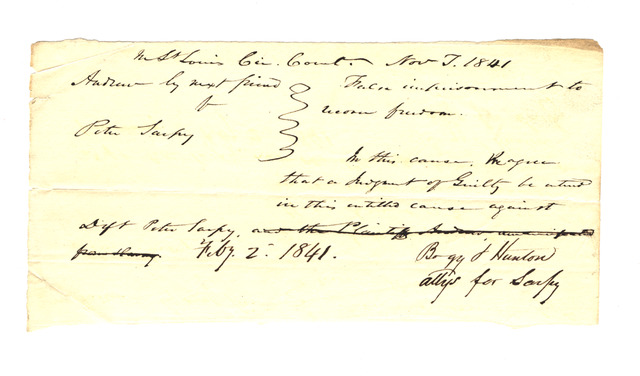 In St Louis Cir. Court Nov T. 1841
Andrew by next friend
v
Peter Sarpy
False imprisonment to
recover freedom.
In this cause, We agree
that a Judgment of Guilty be entered
in this entitled cause against
Deft Peter Sarpy, and the Plaintiff Andrew emancipated
from slavery Feby. 2. 1841.
Bogy & Hunton
attys for Sarpy